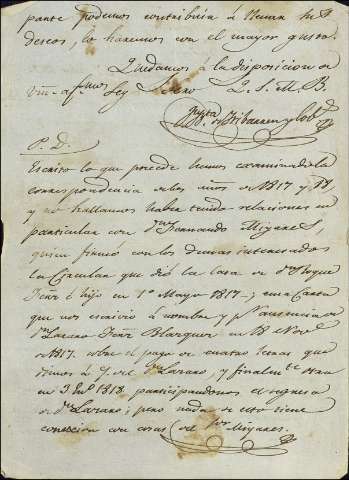 parte podemos contribuir á llenar sus
deseos, lo haremos con el mayor gusto.
Quedamos á la disposicion de
Vm. afmos Seg. Serv. Q. S. M. B.
P. D.
Escrito lo que precede hemos examinado la
correspondencia de los años de 1817 y 18
y no hallamos haber tenido relaciones en
particular con Dn. Fernando Miyares,
quien firmó con los demas interesados
la Circular que dió la casa de Dn. Roque
é hijo en 1º Mayo 1817 y una Carta
que nos escrivió á nombre y pr. ausencia de
Dn. Lazaro Blazquez en 18 Nove.
de 1817 sobre el pago de cuatro letras que
dimos á de Lazaro, y finalmte. otra
en 3 En. 1818 participandonos el regreso
de Dn. Lazaro; pero nada de esto tiene
coneccion con cosas del Sor. Miyares.